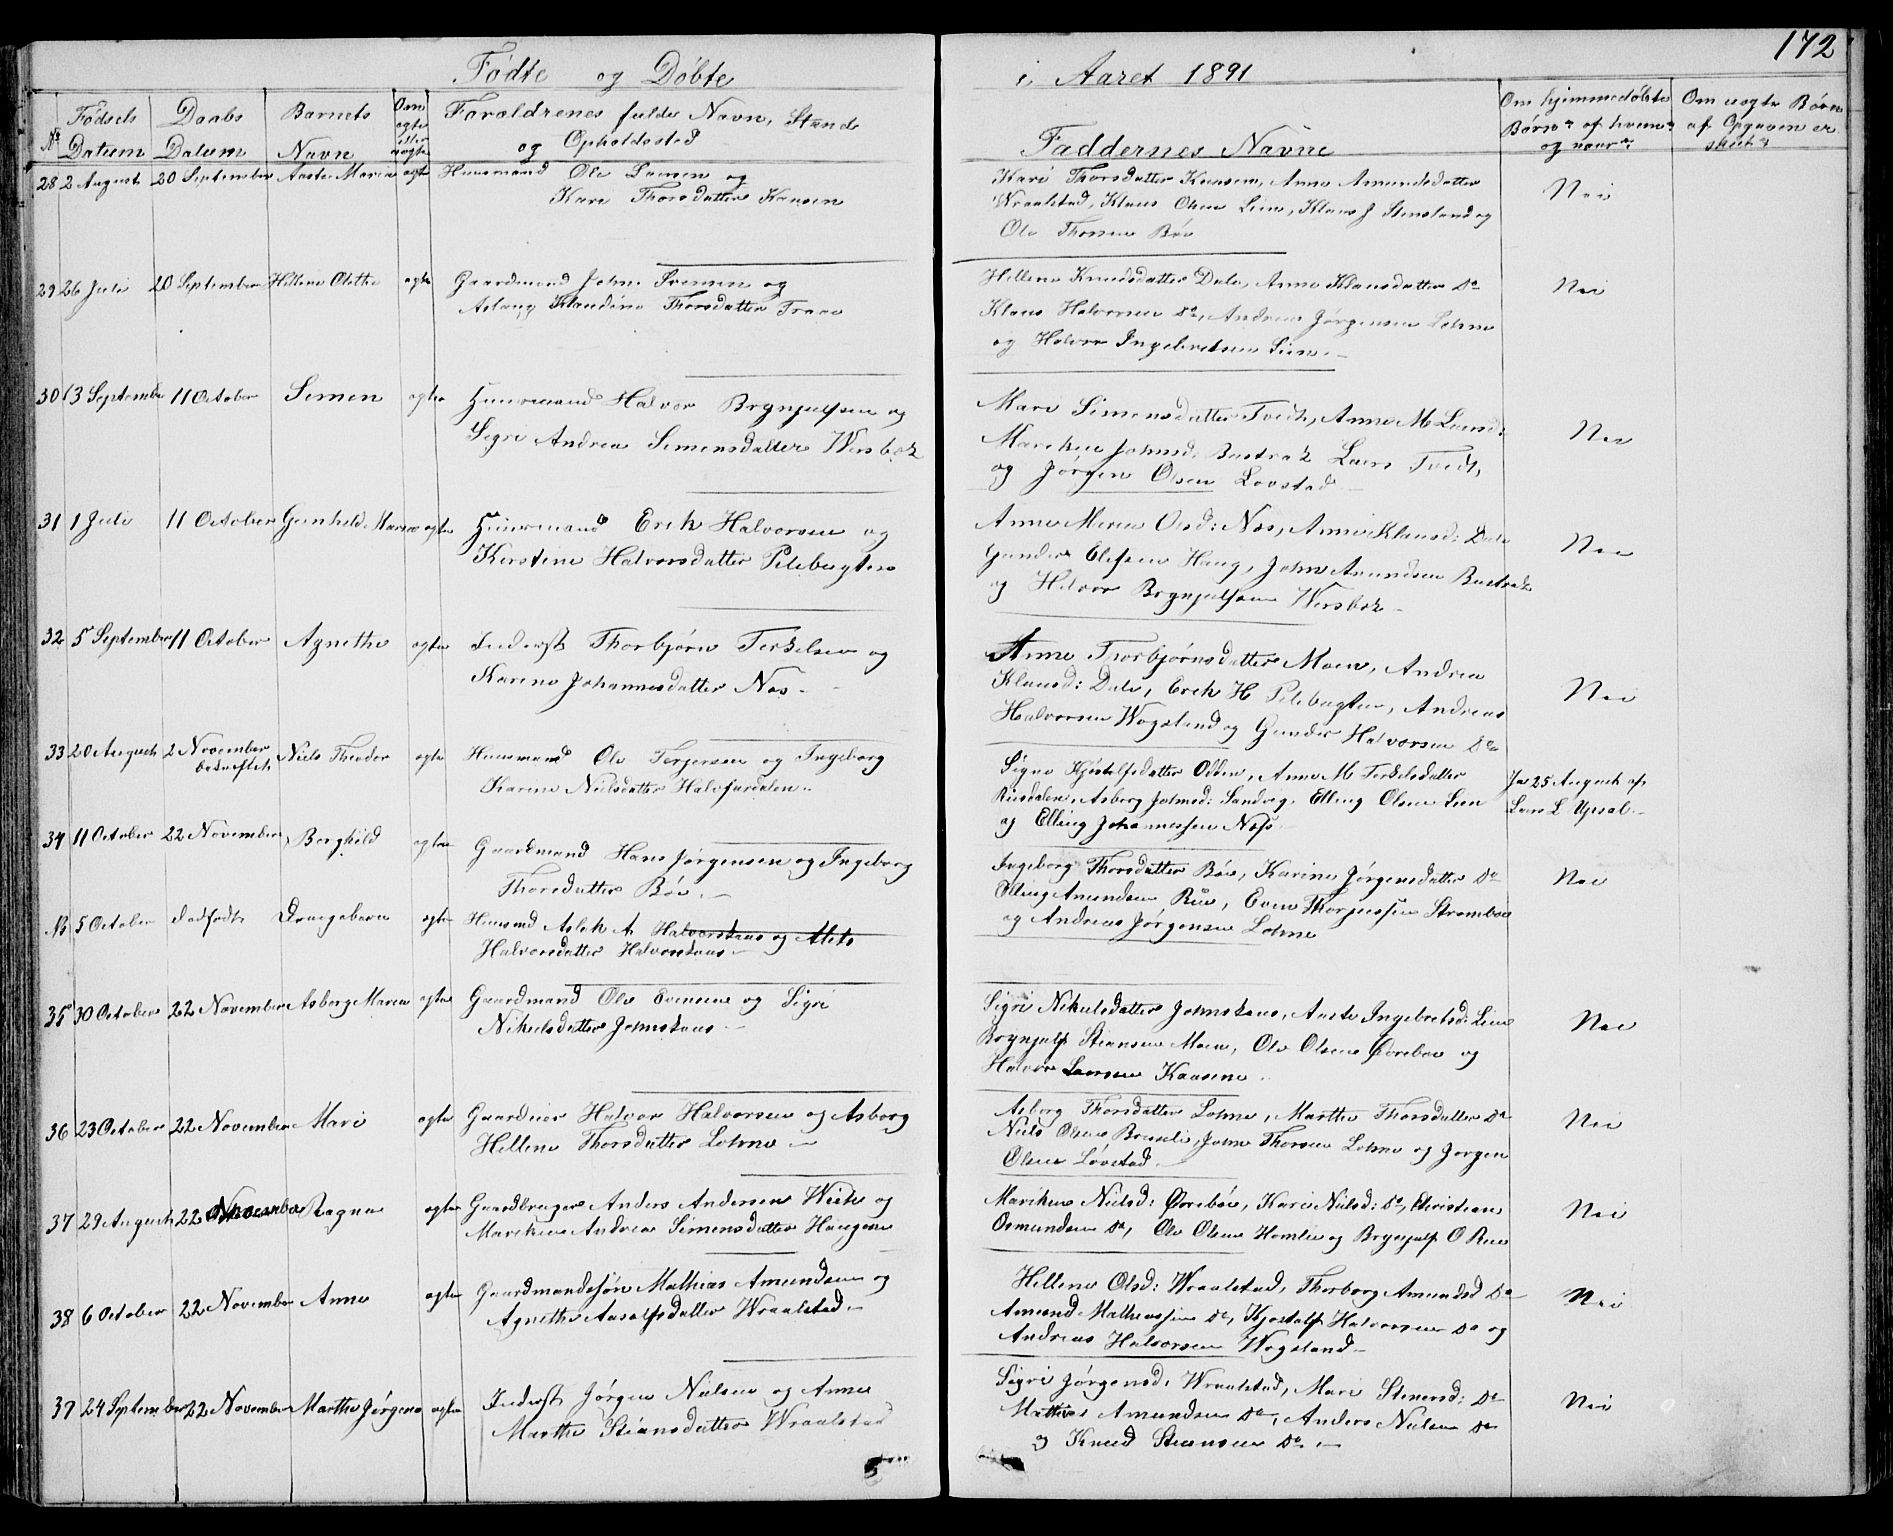 172
Fødte og Døbte i Aaret 1891
No Fødsels Datum Daabs Datum Barnets Navn Om ægte eller uægte Forældrenes fulde Navn, Stand og Opholdssted Faddernes Navne Om hjemmedøbte Børn? af hvem? og naar? Om uægte Børn af Opgaven er skeet?
28 2 August 20 September Aaste Maria ægte Huusmand Ole Larsen og
Kari Thorsdatter Kaasen
Kari Thorsdatter Kaasen, Anne Amundsdatter
Wraalstad, Klaus Olsen Lien, Klaus J Stensland og
Ole Thorsen Bøe
Nei
29 26 Juli 20 September Hellene Olette ægte Gaardmand John Svensen og
Aslaug Klandine Thorsdatter Traae
Hellene Knudsdatter Dale, Anne Klausdatter Do
Klaus Halvorsen Do, Andreas Jørgensen Lohne
og Halvor Ingebretsen Lien.
Nei
30 13 September 11 October Simen ægte Huusmand Halvor Brynjulfsen og
Sigri Andrea Simensdatter Wersbok
Mari Simensdatter Tvedt, Anne M Larsd:
Mariken Johnsd: Bustrak Lars Tvedt,
og Jørgen Olsen Lovstad
Nei
31 1 Juli 11 October Gunhild Maren ægte Huusmand Erik Halvorsen og
Kirstine Halvorsdatter Pilebugten
Anne Maren Olsd: Næs, Anne Klausd: Dale
Gunder Olefsen Haug, John Amundsen Bustrak
og Halvor Brynjulfsen Wersbok
Nei
32 5 September 11 October Agnethe ægte Inderst Thorbjørn Terkelsen og
Karine Johannesdatter Næs.
Anne Thorbjørnsdatter Moen, Andrea
Klausd: Dale, Erik H Pilebugten, Andreas
Halvorsen Wogsland og Gunder Halvorsen Do
Nei
33 20 August 2 November bekræftet Niels Theodor ægte Huusmand Ole Terjersen og Ingeborg
Karine Nielsdatter Halvfardalen.
Signe Kjøstelfsdatter Odden, Anne M Terkelsdatter
Riisdalen, Asberg Johnsd: Sandvig, Elling Olsen Lien
og Elling Johannessen Næss
Ja 25 August af
Lars L Upsal.
34 11 October 22 November Borghild ægte Gaardmand Hans Jørgensen og Ingeborg
Thorsdatter Bøe.
Ingeborg Thorsdatter Bøe, Karine Jørgensdatter Do
Elling Amundsen Rue, Even Thorjussen Strømboe
og Andreas Jørgensen Lohne
Nei
No 5 October dødfødt Drengebarn ægte Huusmd Aslak A Halvorskaas og Alete
Halvorsdatter Halvorskaas
35 30 October 22 November Asborg Maren ægte Gaardmand Ole Evensen og Sigri
Nikulsdatter Johnskaas
Sigri Nikulsdatter Johnskaas, Aaste Ingebretsd: Lien
Brynjulf Steansen Moen, Ole Olsen Ørebøe og
Halvor Larsen Kaasene.
Nei
36 23 October 22 November Mari ægte Gaardeier Halvor Halvorsen og Asborg
Hellene Thorsdatter Lohne
Asborg Thorsdatter Lohne, Marthe Thorsdatter Do
Niels Olsen Bruseli, John Thorsen Lohne og Jørgen
Olsen Lovstad
Nei
37 29 August 22 November Ragna ægte Gaardbruger Anders Andersen Weste og
Mariken Andrea Simensdatter Haugen
Mariken Nielsd: Ørebøe, Kari Nielsd: Do, Christian
Osmundsen Do, Ole Olsen Homlie og Brynjulf O Rue
Nei
38 6 October 22 November Anne ægte Gaardmandssøn Mathias Amundsen og
Agnethe Aasolfsdatter Wraalstad.
Hellene Olsd: Wraalstad, Thorborg Amundsd Do
Amund Mathiassen Do, Kjostolf Halvorsen Do og
Andreas Halvorsen Wogsland
Nei
37 24 September 22 November Marthe Jørgene ægte Inderst Jørgen Nielsen og Anne
Marthe Steansdatter Wraalstad
Sigri Jørgensd: Wraalstad, Mari Stenersd: Do
Mathias Amundsen Do, Anders Nielsen Do
og Knud Steansen Do
Nei